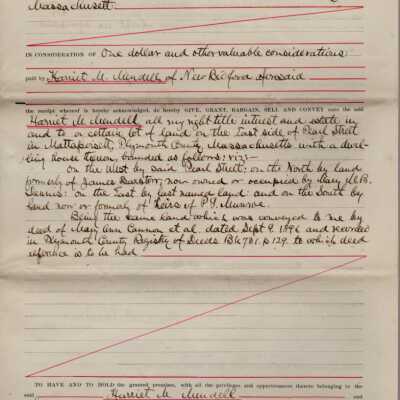 Massachusetts.
IN CONSIDERATION OF One dollar and other valuable considerations
paid by Harriet M. Mendell of New Bedford aforesaid
the receipt whereof is hereby acknowledged, do hereby GIVE, GRANT, BARGAIN, SELL AND CONVEY unto the said
Harriet M. Mendell all my right title interest and estate in
and to a certain lot of land on the East side of Pearl Street
in Mattapoisett, Plymouth County, Massachusetts with a dwel-
ling house thereon, bounded as follows: viz:-
On the West by said Pearl Street; on the North by land
formerly of James Barstow, now owned or occupied by Mary M. B.
On the East by last named land and on the South by
land now or formerly of Heirs of P. G. Munroe.
Being the same land which was conveyed to me by
deed of Mary Ann Cannon et al. dated Sept 9. 1896 and recorded
in Plymouth County Registry of Deeds Bk 731. p 129. to which deed
reference is to be had
TO HAVE AND TO HOLD the granted premises, with all the privileges and appurtenances thereto belonging to the
said Harriet M. Mendell and